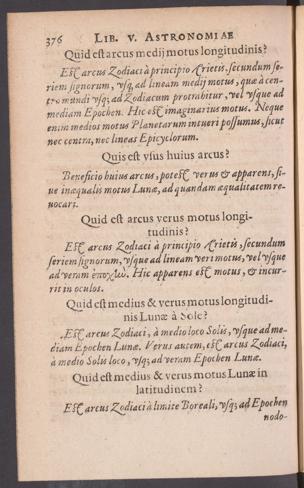 376 LIB. V. ASTRONOMIAE
Quid est arcus medij motus longitudinis?
Est arcus Zodiaci à principio Arietis, secundum se-
riem signorum, vsq; ad lineam medij motus, quæ à cen-
tro mundi vsq; ad Zodiacum protrahitur, vel vsque ad
mediam Epochen. Hic est imaginarius motus. Neque
enim medios motus Planetarum intueri possumus, sicut
nec centra, nec lineas Epicyclorum.
Quis est vsus huius arcus?
Beneficio huius arcus, potest verus & apparens, si-
ue inæqualis motus Lunæ, ad quandam æqualitatem re-
uocari.
Quid est arcus verus motus longi-
tudinis?
Est arcus Zodiaci à principio Arietis, secundum
seriem signorum, vsque ad lineam veri motus, vel vsque
ad veram ἐποχὴν. Hic apparens est motus, & incur-
rit in oculos.
Quid est medius & verus motus longitudi-
nis Lunæ à Sole?
Est arcus Zodiaci, à medio loco Solis, vsque ad me-
diam Epochen Lunæ. Verus autem, est arcus Zodiaci,
à medio Solis loco, vsq; ad veram Epochen Lunæ.
Quid est medius & verus motus Lunæ in
latitudinem?
Est arcus Zodiaci à limite Boreali, vsq; ad Epochen
nodo-